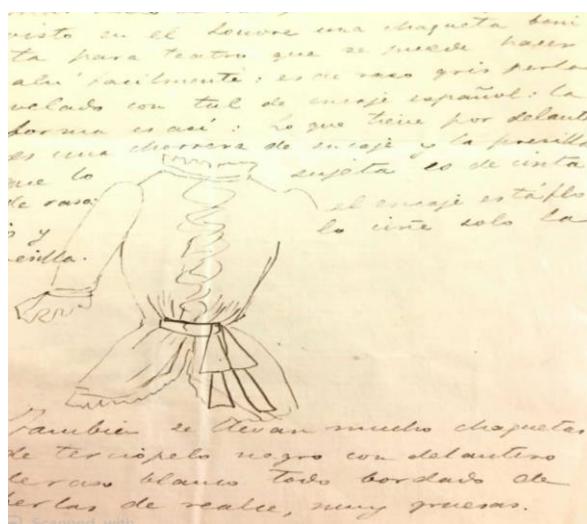 visto en el Louvre una chaqueta boni
ta para teatro que se puede hacer
ahí facilmente: es de raso gris perla
velado con tul de encaje español: la
forma es así: Lo que tiene por delante
es una chorrera de encaje y la presilla
que lo sujeta es de cinta
de raso: el encaje está flo
jo y lo ciñe solo la
presilla.
Tambien se llevan mucho chaquetas
de terciopelo negro con delantero
de raso blanco todo bordado de
perlas de realce, muy gruesas.
Scanned with